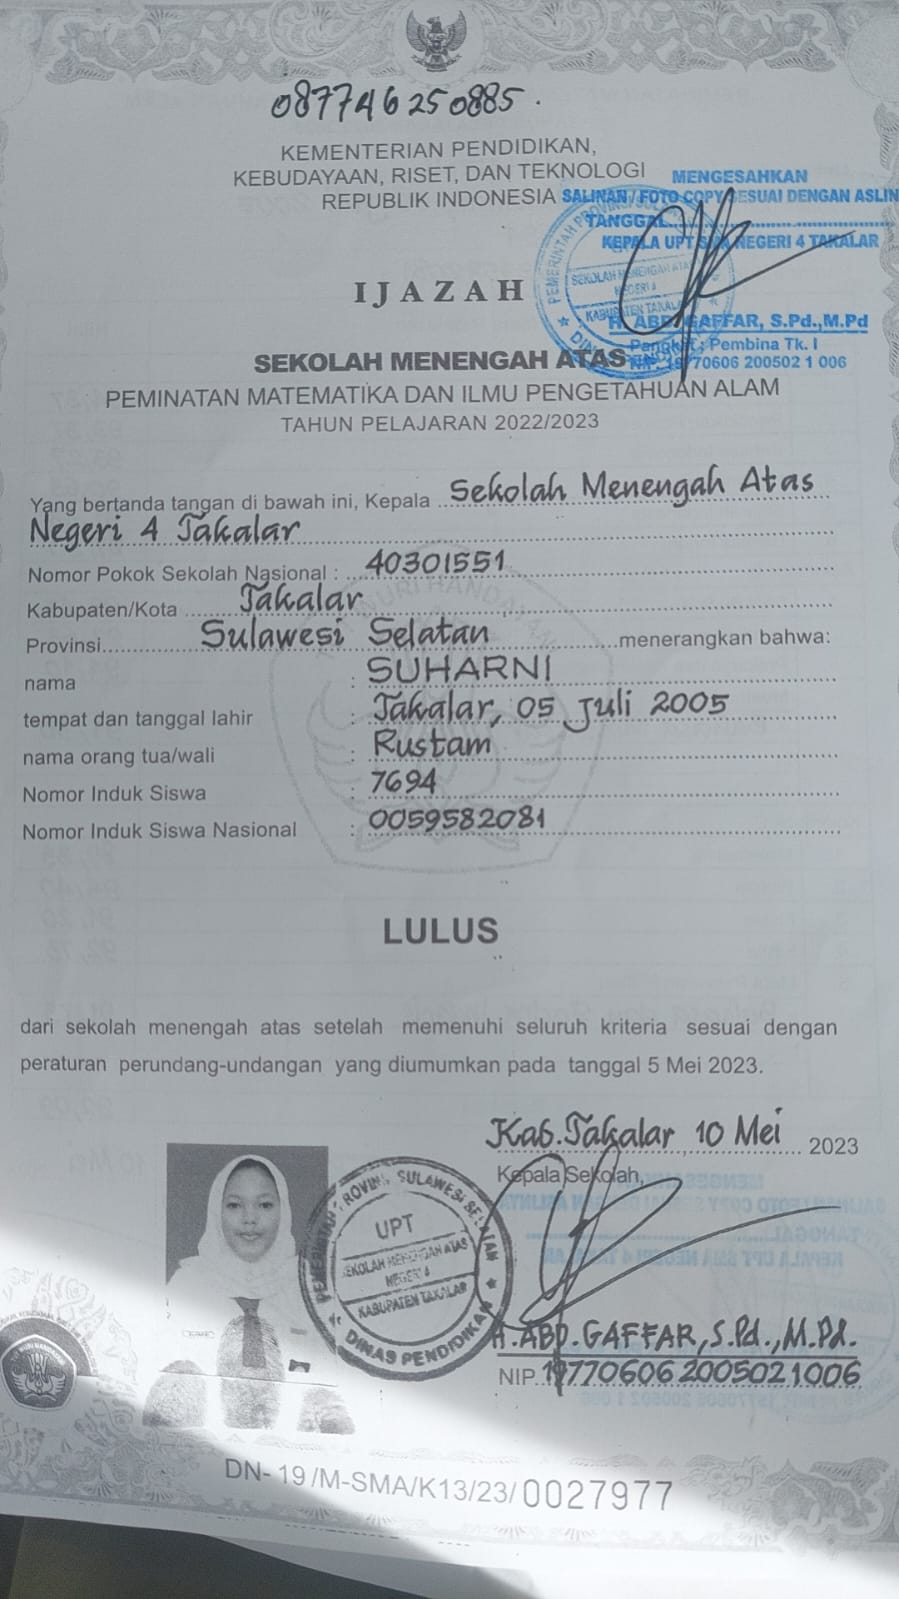 087746250885.
KEMENTERIAN PENDIDIKAN,
KEBUDAYAAN, RISET, DAN TEKNOLOGI
REPUBLIK INDONESIA
MENGESAHKAN
SALINAN / FOTO COPY SESUAI DENGAN ASLIN
TANGGAL
KEPALA UPT SMA NEGERI 4 TAKALAR
H. ABD. GAFFAR, S.Pd.,M.Pd
Pangkat : Pembina Tk. I
NIP. 19770606 200502 1 006
IJAZAH
SEKOLAH MENENGAH ATAS
PEMINATAN MATEMATIKA DAN ILMU PENGETAHUAN ALAM
TAHUN PELAJARAN 2022/2023
Yang bertanda tangan di bawah ini, Kepala Sekolah Menengah Atas
Negeri 4 Takalar
Nomor Pokok Sekolah Nasional : 40301551
Kabupaten/Kota Takalar
Provinsi Sulawesi Selatan menerangkan bahwa:
nama : SUHARNI
tempat dan tanggal lahir : Takalar, 05 Juli 2005
nama orang tua/wali : Rustam
Nomor Induk Siswa : 7694
Nomor Induk Siswa Nasional : 0059582081
LULUS
dari sekolah menengah atas setelah memenuhi seluruh kriteria sesuai dengan
peraturan perundang-undangan yang diumumkan pada tanggal 5 Mei 2023.
Kab. Takalar, 10 Mei 2023
Kepala Sekolah,
SULAWESI SELATAN
UPT
SEKOLAH MENENGAH ATAS
NEGERI 4
KABUPATEN TAKALAR
DINAS PENDIDIKAN
H. ABD. GAFFAR, S.Pd., M.Pd.
NIP. 197706062005021006
DN-19/M-SMA/K13/23/0027977